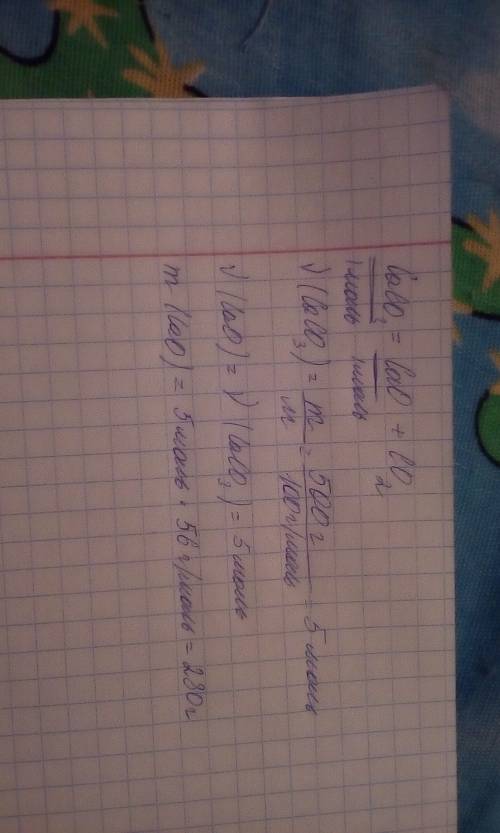 CaCO3 = CaO + CO2
1моль 1моль
ν(CaCO3) = m/M = 500г/100г/моль = 5 моль
ν(CaO) = ν(CaCO3) = 5 моль
m (CaO) = 5 моль · 56 г/моль = 280г